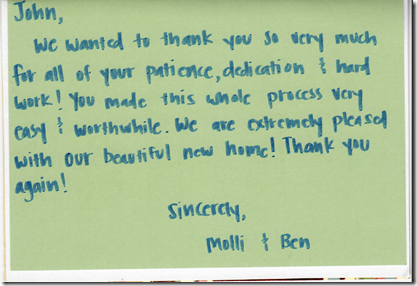 John,
We wanted to thank you so very much
for all of your patience, dedication & hard
work! You made this whole process very
easy & worthwhile. We are extremely pleased
with our beautiful new home! Thank you
again!
Sincerely,
Molli & Ben